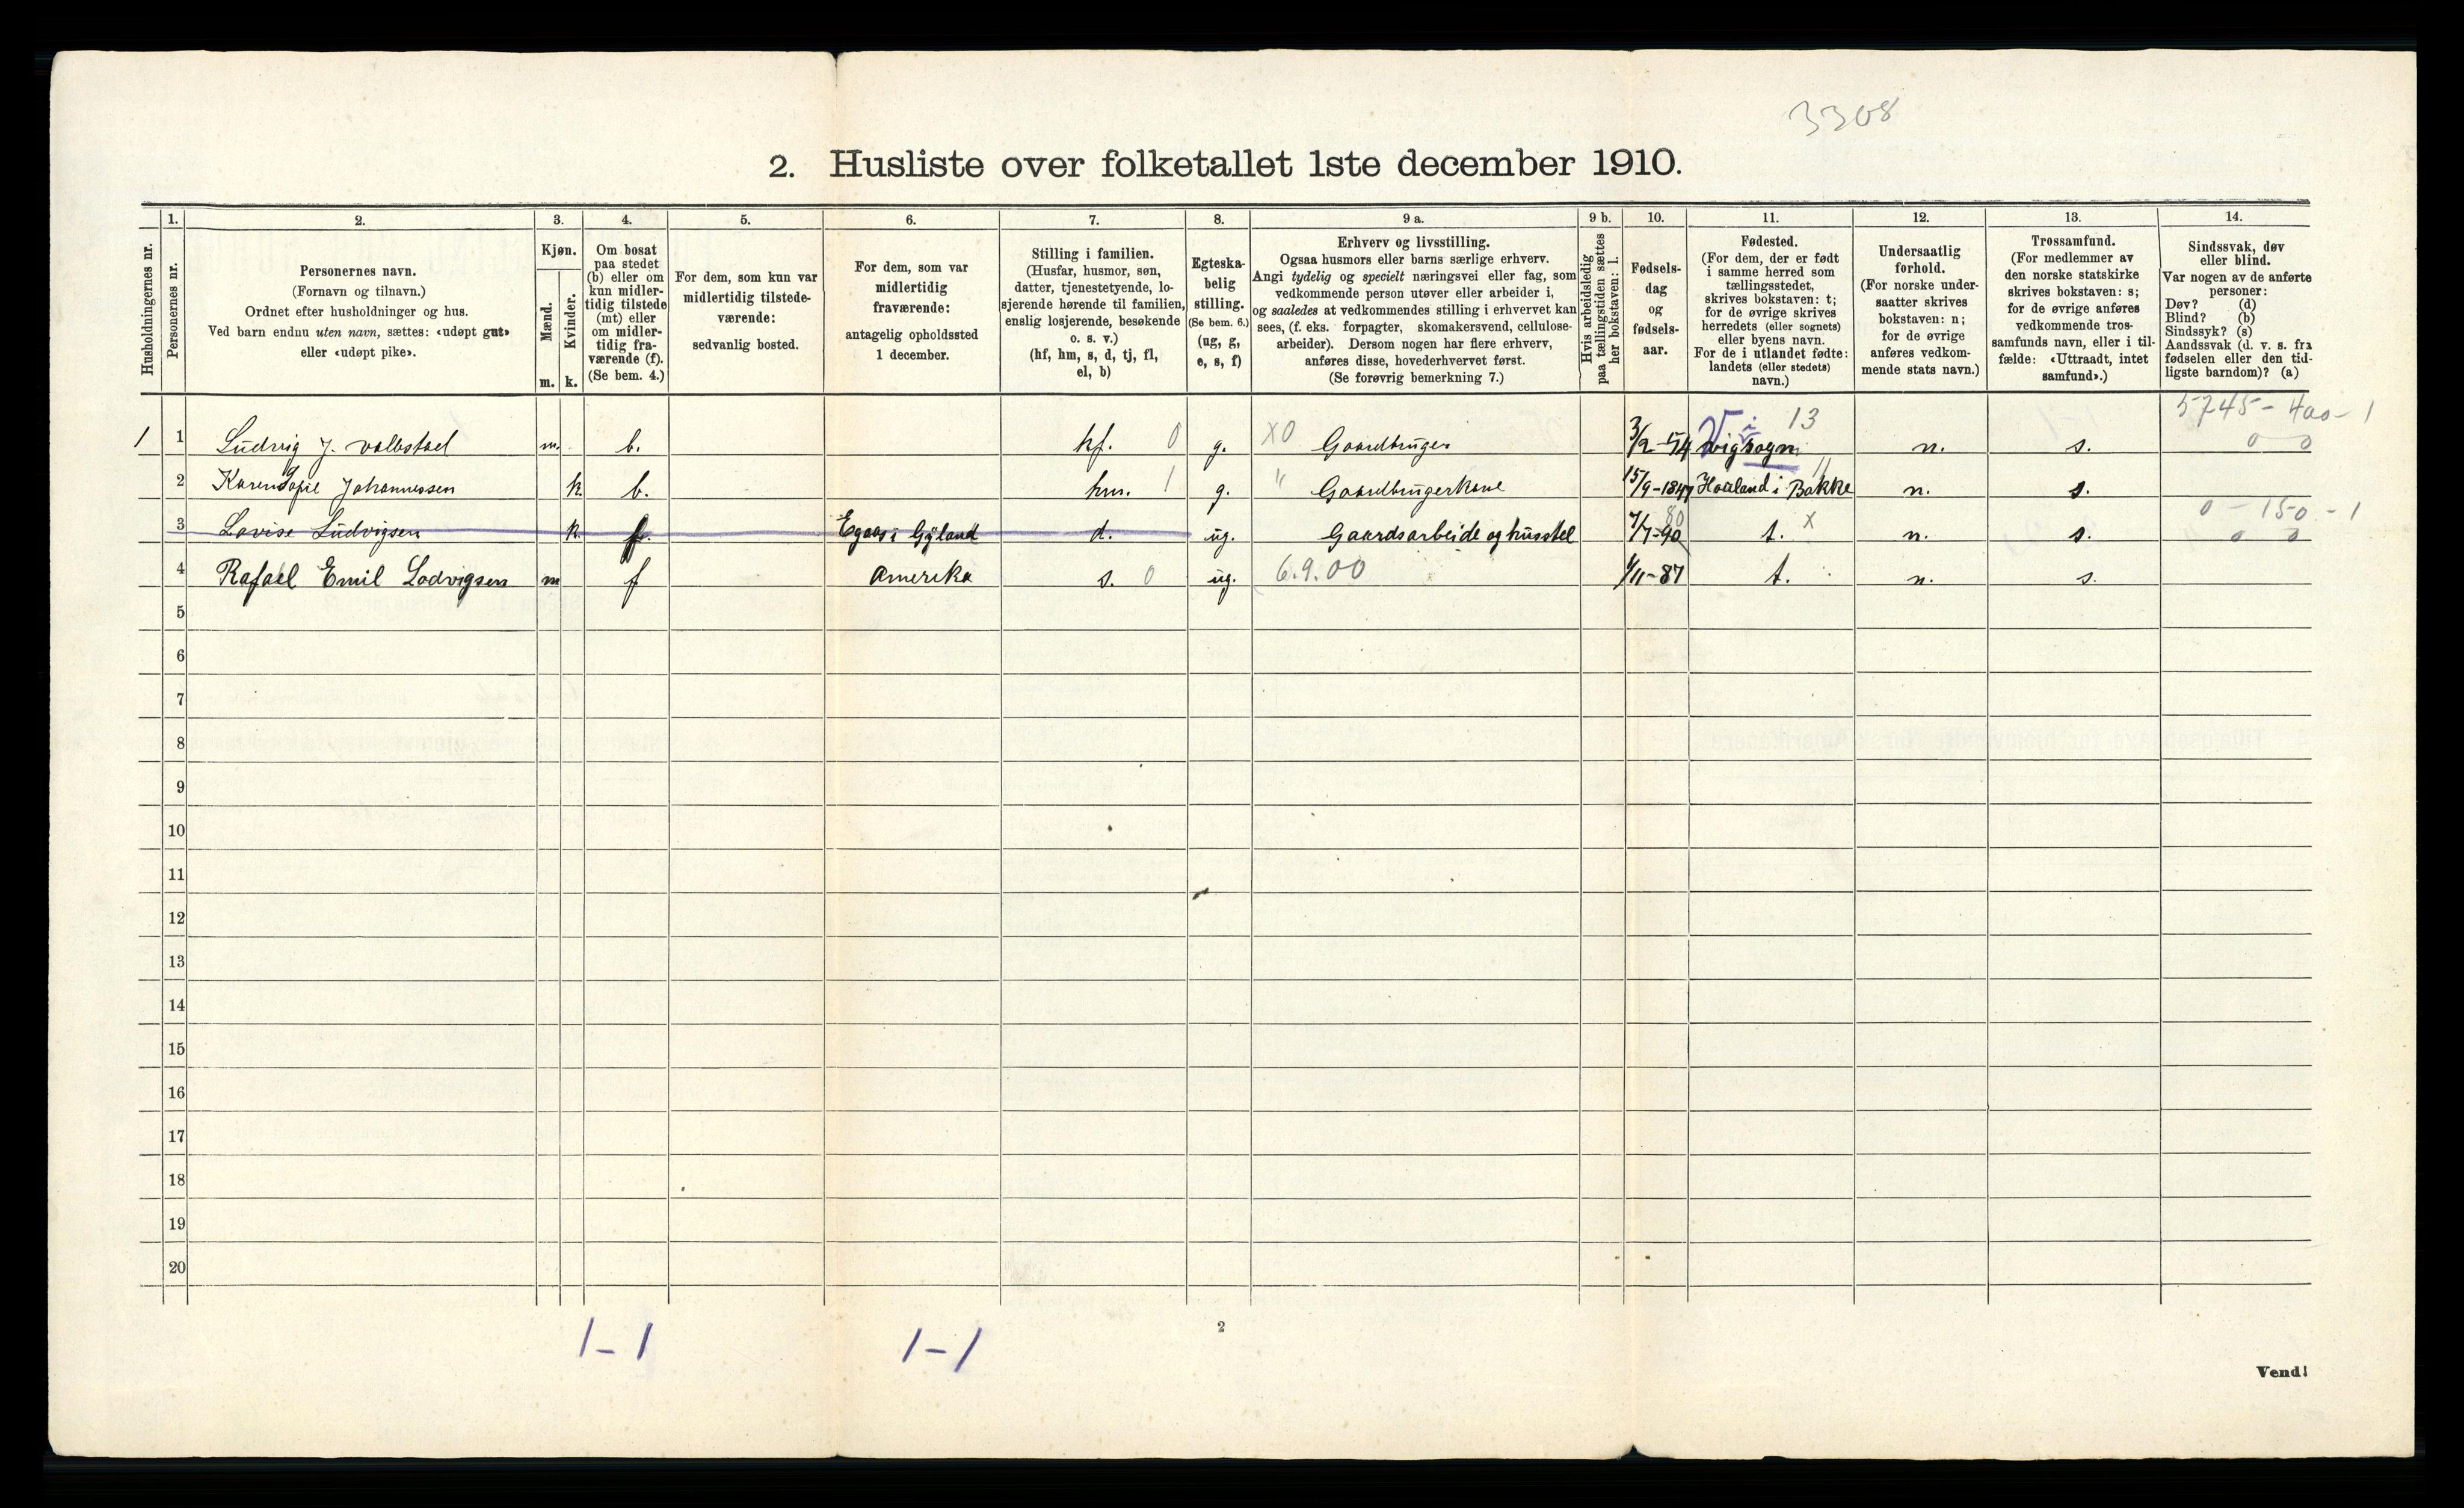 3308
2. Husliste over folketallet 1ste december 1910.
Husholdningernes nr.
1.
Personernes nr.
2.
Personernes navn.
(Fornavn og tilnavn.)
Ordnet efter husholdninger og hus.
Ved barn endnu uten navn, sættes: «udøpt gut»
eller «udøpt pike».
3.
Kjøn.
Mænd.
Kvinder.
m. k.
4.
Om bosat
paa stedet
(b) eller om
kun midler-
tidig tilstede
(mt) eller
om midler-
tidig fra-
værende (f).
(Se bem. 4.)
5.
For dem, som kun var
midlertidig tilstede-
værende:
sedvanlig bosted.
6.
For dem, som var
midlertidig
fraværende:
antagelig opholdssted
1 december.
7.
Stilling i familien.
(Husfar, husmor, søn,
datter, tjenestetyende, lo-
sjerende hørende til familien,
enslig losjerende, besøkende
o. s. v.)
(hf, hm, s, d, tj, fl,
el, b)
8.
Egteska-
belig
stilling.
(Se bem. 6.)
(ug, g,
e, s, f)
9 a.
Erhverv og livsstilling.
Ogsaa husmors eller barns særlige erhverv.
Angi tydelig og specielt næringsvei eller fag, som
vedkommende person utøver eller arbeider i,
og saaledes at vedkommendes stilling i erhvervet kan
sees, (f. eks. forpagter, skomakersvend, cellulose-
arbeider). Dersom nogen har flere erhverv,
anføres disse, hovederhvervet først.
(Se forøvrig bemerkning 7.)
9 b.
Hvis arbeidsledig
paa tællingstiden sættes
her bokstaven: l.
10.
Fødsels-
dag
og
fødsels-
aar.
11.
Fødested.
(For dem, der er født
i samme herred som
tællingsstedet,
skrives bokstaven: t;
for de øvrige skrives
herredets (eller sognets)
eller byens navn.
For de i utlandet fødte:
landets (eller stedets)
navn.)
12.
Undersaatlig
forhold.
(For norske under-
saatter skrives
bokstaven: n;
for de øvrige
anføres vedkom-
mende stats navn.)
13.
Trossamfund.
(For medlemmer av
den norske statskirke
skrives bokstaven: s;
for de øvrige anføres
vedkommende tros-
samfunds navn, eller i til-
fælde: «Uttraadt, intet
samfund».)
14.
Sindssvak, døv
eller blind.
Var nogen av de anførte
personer:
Døv? (d)
Blind? (b)
Sindssyk? (s)
Aandssvak (d. v. s. fra
fødselen eller den tid-
ligste barndom)? (a)
13 5745 - 400 - 1
1 1 Ludvig J. m. b. hf. 0 g. X0 Gaardbruger 3/2 - 54 n. s. 0 0
2 Karen Sofie Johannessen k. b. hm. 1 g. " Gaardbrugerkone 15/9-1847 Houland i Bakke 11 n. s.
0 - 150 - 1
3 Lovise Ludvigsen k. f. i Gyland d. ug. Gaardsarbeide og husstel 7/7-90 80 t. x n. s. 0 0
4 Rafael Emil Lodvigsen m f Amerika s. 0 ug. 6.9.00 1/11-87 t. n. s.
5
6
7
8
9
10
11
12
13
14
15
16
17
18
19
20
1-1 1-1
2
Vend!